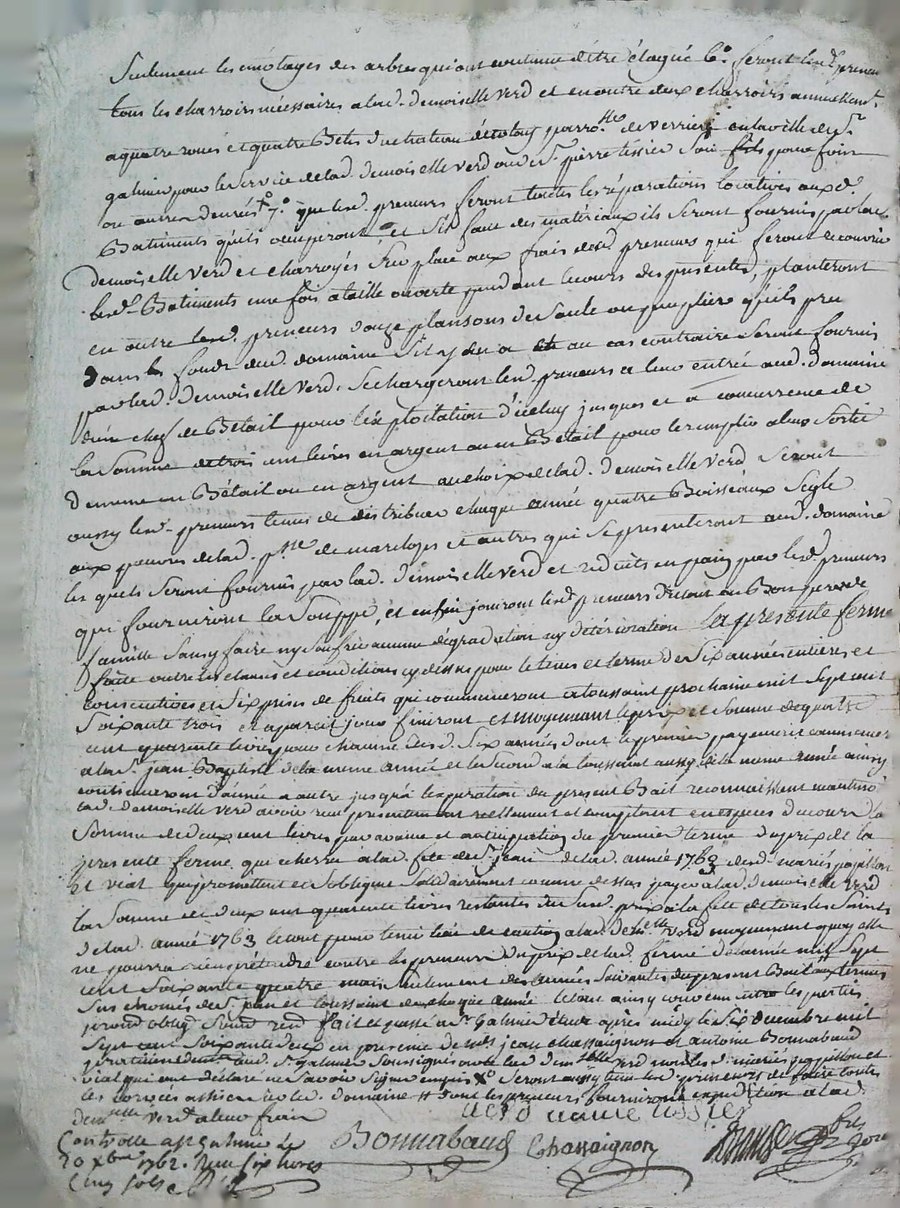 Seulement les émotages des arbres qui ont coutume d'être élagué 6.° feront lesd. preneurs
tous les charroirs nécessaires a lad. demoiselle verd et en outre deux charroirs annuellemt.
a quatre roues et quatre Bêtes de traition de lad. parroisse de verriere en la ville de St.
galmier pour le service de lad. demoiselle verd ou de Sr. pierre tessier pour foin
ou autres denrés 7.° que lesd. preneurs feront toutes les réparations locatives auxd.
Batiments qu'ils occuperont et S'il faut des matériaux ils Seront fournis par lad.
demoiselle verd et charroyés Sur place aux frais desd. preneurs qui feront recouvrir
lesd. Batiments une fois a taille ouverte pendant le cours des présentes, planteront
en outre lesd. preneurs douze plansons de Saule ou peuplier qu'ils pren
dans les fonds dud. domaine S'il y en a au cas contraire Seront fournis
par lad. demoiselle verd. Se chargeront lesd. preneurs a leur entrée aud. domaine
de Bétail pour l'exploitation d'iceluy jusques et a concurrence de
la Somme de trois cent livres en argent ou en Bétail pour les a leur Sortie
de meme en Bétail ou en argent au choix de lad. demoiselle verd Seront
aussy lesd. preneurs tenus de distribuer chaque année quatre Boisseaux Segle
aux pauvres de lad. psse de et autres qui Se presenteront aud. domaine
les quels Seront fournis par lad. demoiselle verd et reduits en pain par lesd. preneurs
qui fourniront la Souppe, et enfin jouiront lesd. preneurs du tout en Bon pere de
famille Sans y faire ny Soufrir aucune dégradation ny détérioration la presente ferme
faitte outre les clauses et conditions cy dessus pour le tems et terme de Six années entieres et
consecutives et Six prises de fruits qui commenceront a toussaint prochaine mil Sept cent
Soixante trois et a pareil jour finiront et moyennant le prix et Somme de quatre
cent quarente livres pour chacune desd. Six années dont le premier payement commencer
a la St. jean Baptiste de la meme année et le Second a la toussaint aussy de la meme année ainsy
continueront d'année a autre jusqu'a l'expiration du present Bail reconnaissant
lad. demoiselle verd avoir reçu presentement réellement et comptant en especes de cours la
Somme de deux cent livres par avance et anticipation du premier terme du prix de la
presente ferme qui echerra a lad. fete de St. jean de lad. année 1763 desd. mariés
et viat qui promettent et S'obligent Solidairement comme dessus payer a lad. demoiselle verd
la Somme de deux cent quarente livres restantes du Sud. prix a la fette de tous les Saints
de lad. année 1763 le tout pour tenir lieu de caution a lad. demelle verd moyennant quoy elle
ne pourra rien prétendre contre les preneurs du prix de lad. ferme de l'année mil Sept
cent Soixante quatre mais Seulement des années Suivantes du present Bail aux termes
Sus enoncés de St. jean et toussaint de chaque année le tout ainsy convenu entre les parties
promt. oblig. Soum. ren. fait et passé a St. Galmier étude après midy le Six decembre mil
Sept cent Soixante deux en presence de jean chassaignon et antoine Bonnabaud
praticiens aud. St. galmier Soussignés avec lad. demelle verd non lesd. mariés et
viat qui ont déclaré ne Savoir Signer enquis Seront aussy tenus lesd. preneurs de faire toutes
les corvées domaine dont les preneurs fourniront expédition a lad.
demelle verd a leur frais
verd tissier
Controlle a St. galmier Le
20 Xbre 1762. Reçu Six livres
Cinq Sols
Bonnabaud Chassaignon